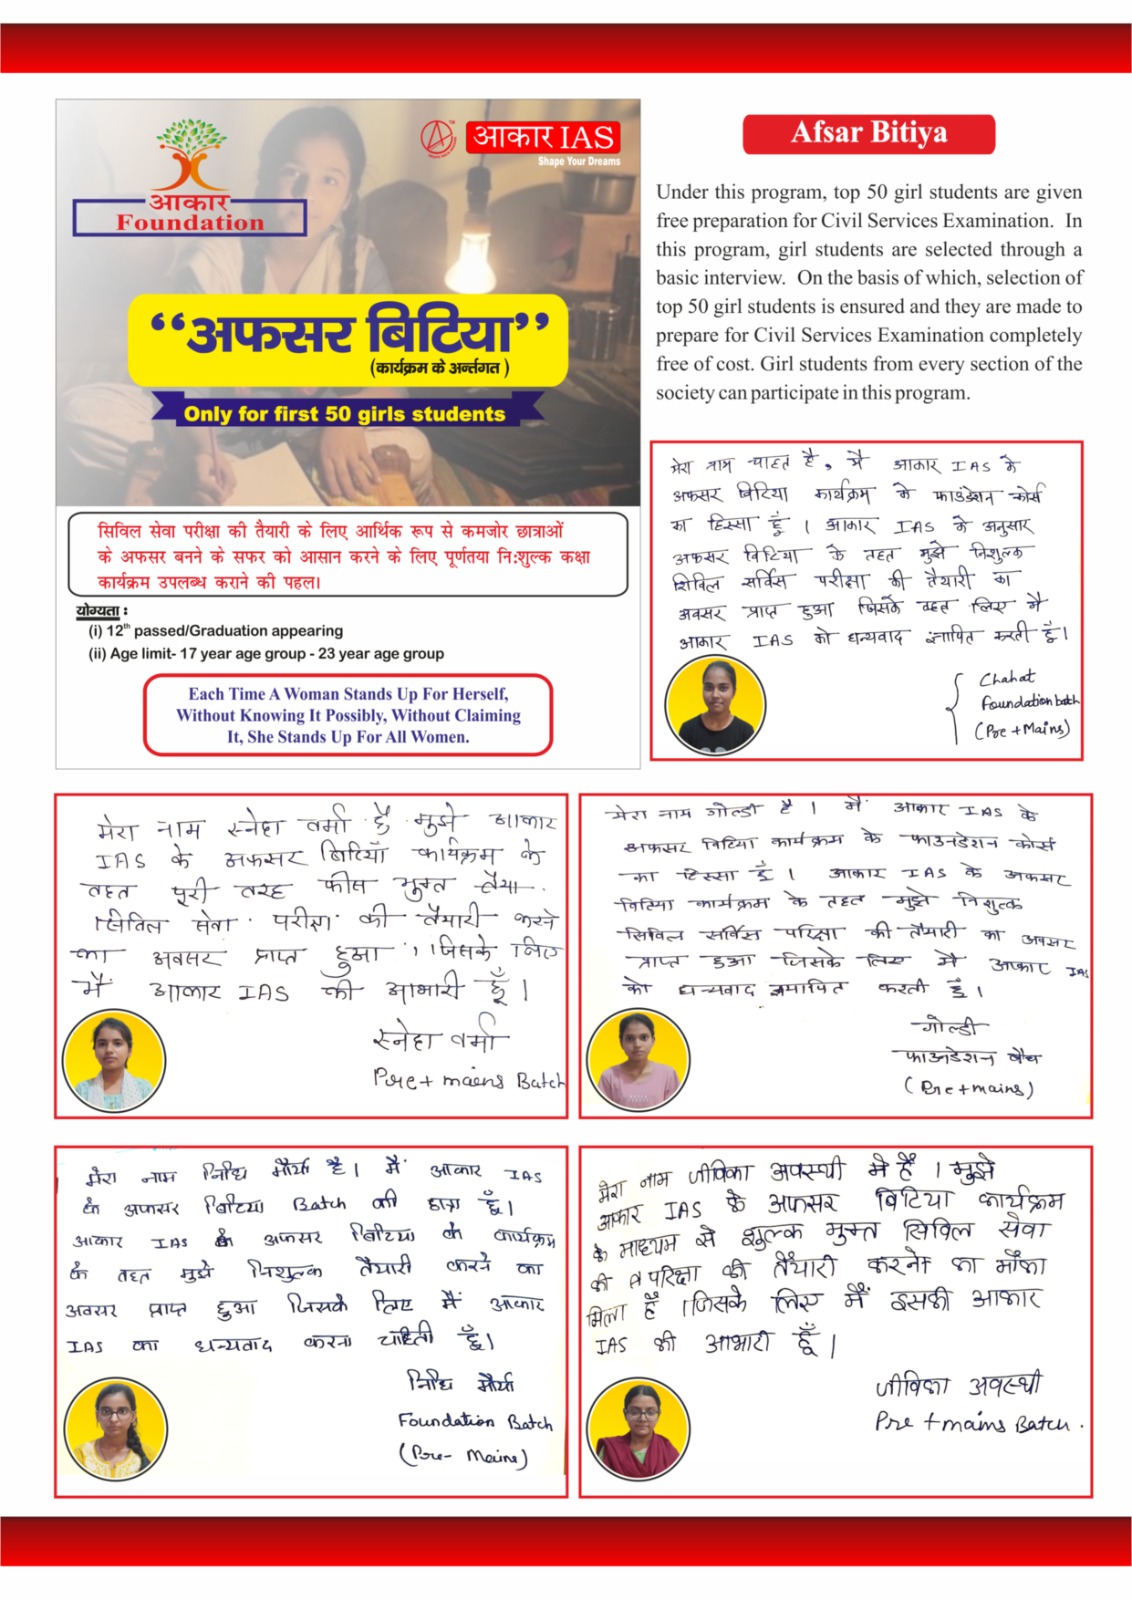 आकार
Foundation
आकार IAS
Shape Your Dreams
“अफसर बिटिया”
(कार्यक्रम के अर्न्तगत )
Only for first 50 girls students
सिविल सेवा परीक्षा की तैयारी के लिए आर्थिक रूप से कमजोर छात्राओं
के अफसर बनने के सफर को आसान करने के लिए पूर्णतया नि:शुल्क कक्षा
कार्यक्रम उपलब्ध कराने की पहल।
योग्यता :
(i) 12th passed/Graduation appearing
(ii) Age limit- 17 year age group - 23 year age group
Each Time A Woman Stands Up For Herself,
Without Knowing It Possibly, Without Claiming
It, She Stands Up For All Women.
Afsar Bitiya
Under this program, top 50 girl students are given
free preparation for Civil Services Examination. In
this program, girl students are selected through a
basic interview. On the basis of which, selection of
top 50 girl students is ensured and they are made to
prepare for Civil Services Examination completely
free of cost. Girl students from every section of the
society can participate in this program.
मेरा नाम चाहत है, मै आकार IAS के
अफसर बिटिया कार्यक्रम के फाउंडेशन कोर्स
का हिस्सा हूँ । आकार IAS के अनुसार
अफसर बिटिया के तहत मुझे निशुल्क
सिविल सर्विस परीक्षा की तैयारी का
अवसर प्राप्त हुआ जिसके तहत लिए मै
आकार IAS को धन्यवाद ज्ञापित करती हूँ।
Chahat
Foundation batch
(Pre + Mains)
मेरा नाम स्नेहा वर्मा है मुझे आकार
IAS के अफसर बिटियाँ कार्यक्रम के
तहत पूरी तरह फीस मुक्त
सिविल सेवा परीक्षा की तैयारी करने
का अवसर प्राप्त हुआ , जिसके लिए
मैं आकार IAS की आभारी हूँ ।
स्नेहा वर्मा
Pre + mains Batch
मेरा नाम गोल्डी है । मैं आकार IAS के
अफसर बिटिया कार्यक्रम के फाउनडेशन कोर्स
का हिस्सा हूँ । आकार IAS के अफसर
बिटिया कार्यक्रम के तहत मुझे निशुल्क
सिविल सर्विस परिक्षा की तैयारी का अवसर
प्राप्त हुआ जिसके लिए मै आकार IAS
को धन्यवाद करती हूँ ।
गोल्डी
फाउनडेशन बैच
(Pre + mains)
मेरा नाम निधि मौर्या है। मैं आकार IAS
के अफसर बिटिया Batch की छात्रा हूँ।
आकार IAS के अफसर बिटिया के कार्यक्रम
के तहत मुझे निशुल्क तैयारी करने का
अवसर प्राप्त हुआ जिसके लिए मैं आकार
IAS का धन्यवाद करना चाहती हूँ।
निधि मौर्या
Foundation Batch
(Pre- Mains)
मेरा नाम जीविका अवस्थी मे हैं । मुझे
आकार IAS के अफसर बिटिया कार्यक्रम
के माध्यम से शुल्क मुक्त सिविल सेवा
की परिक्षा की तैयारी करने का मौंका
मिला हैं । जिसके लिए मैं इसकी आकार
IAS की आभारी हूँ ।
जीविका अवस्थी
Pre + mains Batch .